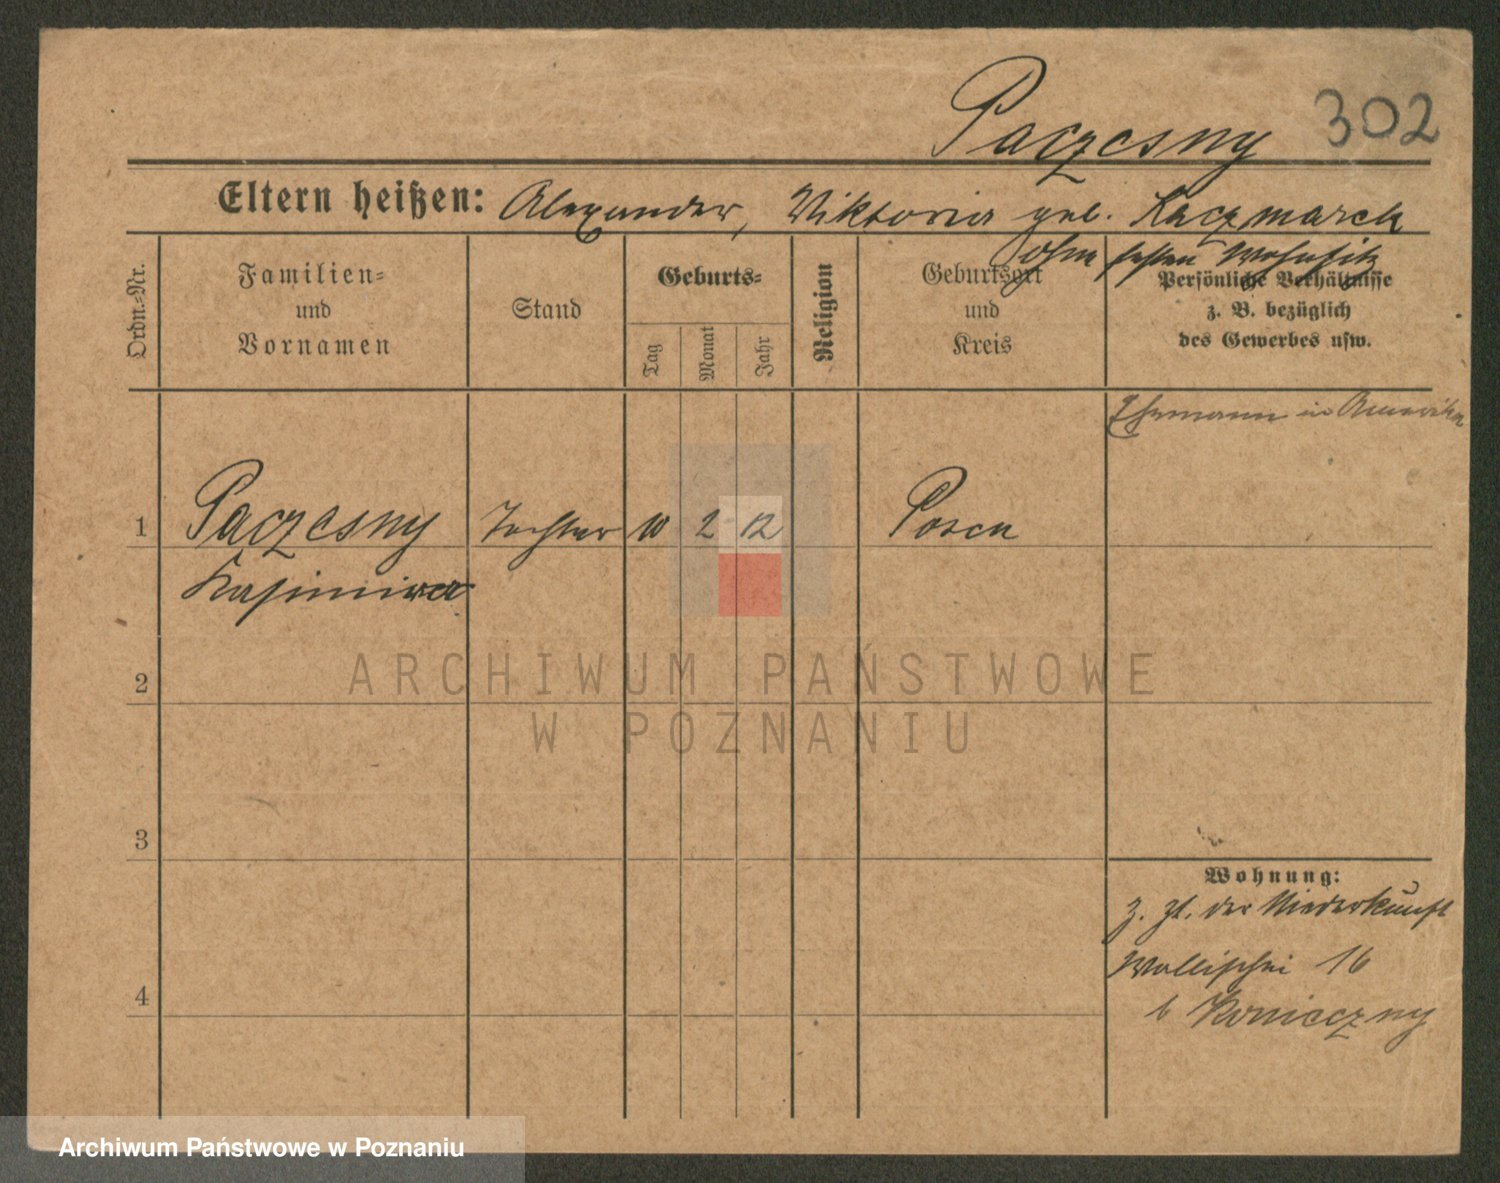 Paczesny 302
Eltern heißen: Alexander, Viktoria geb. Kaczmarek
ohne festen Wohnsitz
Ordn.-Nr.
Familien-
und
Vornamen
Stand
Geburts-
Tag
Monat
Jahr
Religion
Geburtsort
und
Kreis
Persönliche Verhältnisse
z. B. bezüglich
des Gewerbes usw.
Ehemann in Amerika
1 Paczesny Tochter 10 2 12 Posen
Kasimira
ARCHIWUM PAŃSTWOWE
W POZNANIU
2
3
4
Wohnung:
z. Zt. der Niederkunft
Wallischei 16
b Konieczny
Archiwum Państwowe w Poznaniu